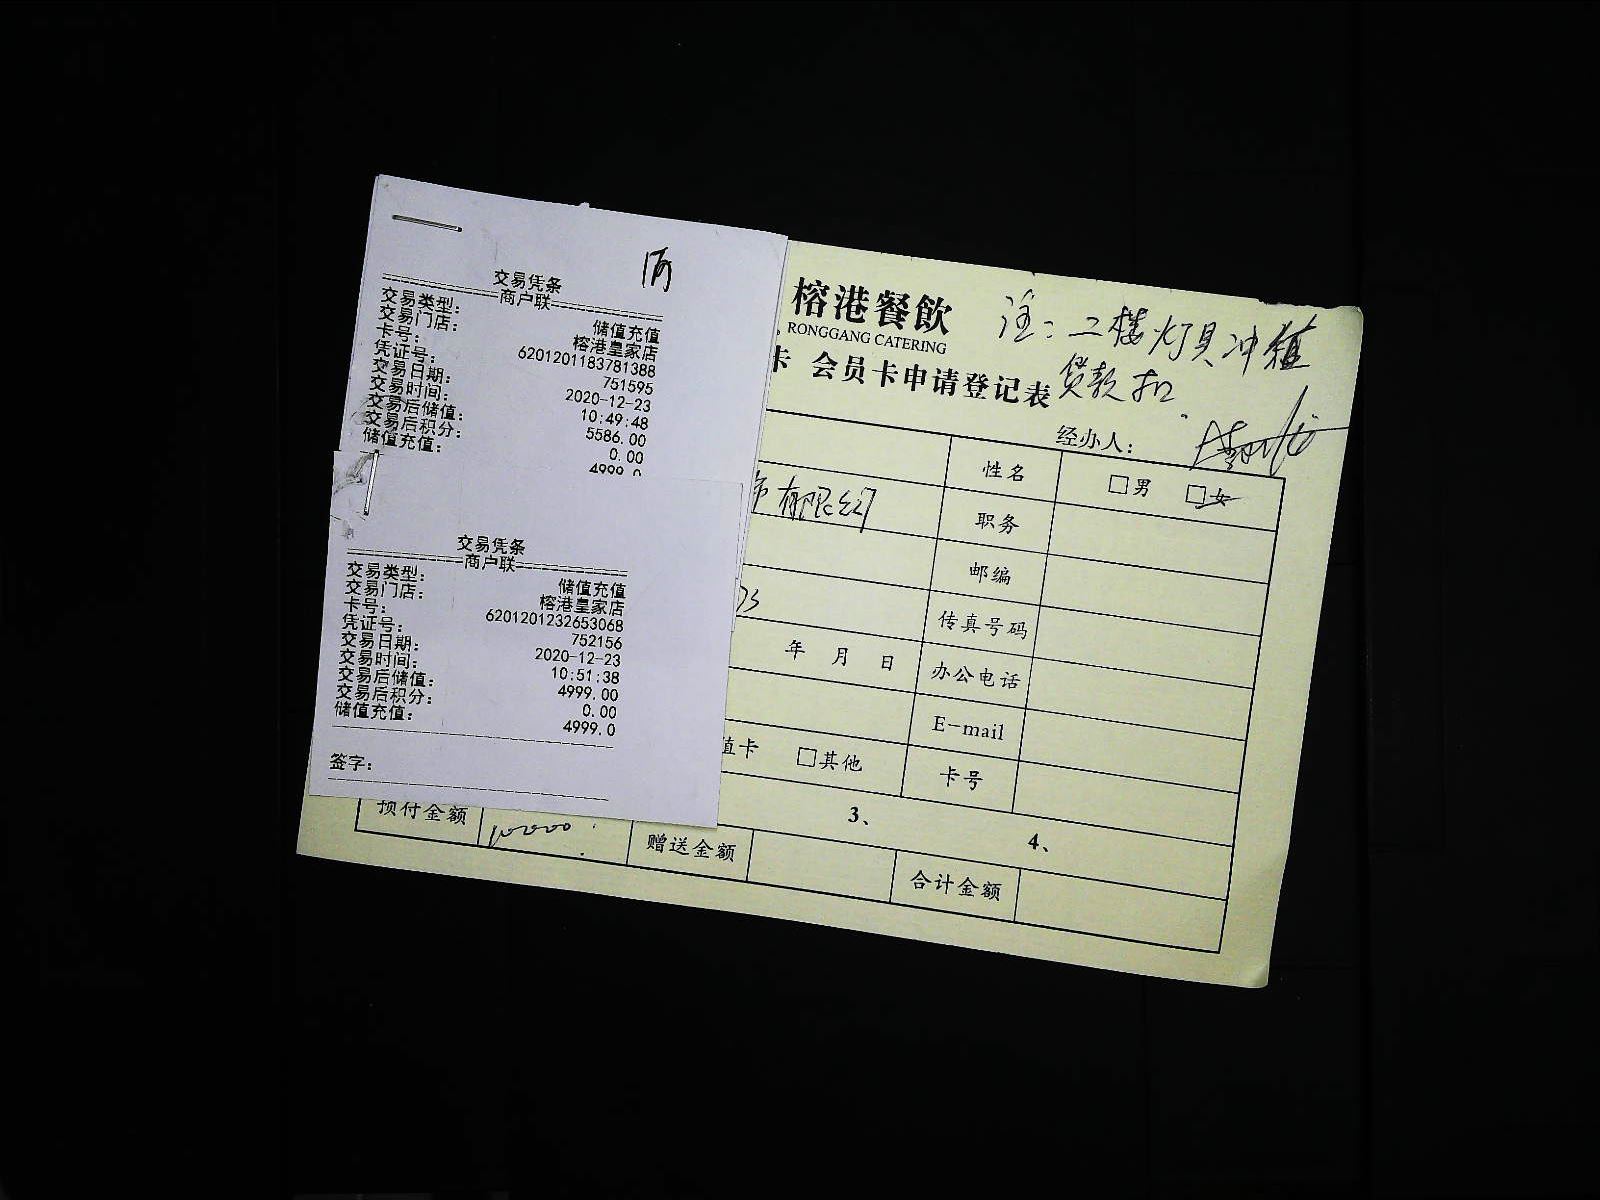 交易凭条
商户联
交易类型： 储值充值
交易门店： 榕港皇家店
卡号： 6201201183781388
凭证号： 751595
交易日期： 2020-12-23
交易时间： 10:49:48
交易后储值： 5586.00
交易后积分： 0.00
储值充值： 4999.0
交易凭条
商户联
交易类型： 储值充值
交易门店： 榕港皇家店
卡号： 6201201232653068
凭证号： 752156
交易日期： 2020-12-23
交易时间： 10:51:38
交易后储值： 4999.00
交易后积分： 0.00
储值充值： 4999.0
签字：
榕港餐飲
RONGGANG CATERING
卡 会员卡申请登记表
注：二楼灯具冲值
货款扣
经办人：
性名 □男 □女
有限公司 职务
邮编
传真号码
年 月 日 办公电话
E-mail
值卡 □其他 卡号
3、 4、
预付金额 10000 赠送金额 合计金额